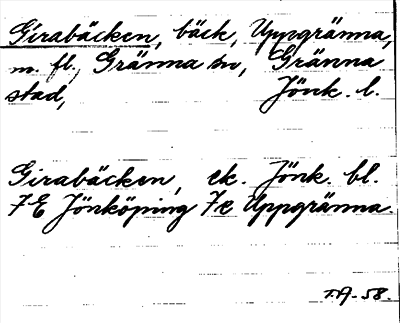 Girabäcken, bäck, Uppgränna,
m. fl., Gränna sn, Gränna
stad, Jönk. l.
Girabäcken, ek. Jönk. bl.
7 E Jönköping 7 e Uppgränna.
T.A-58.